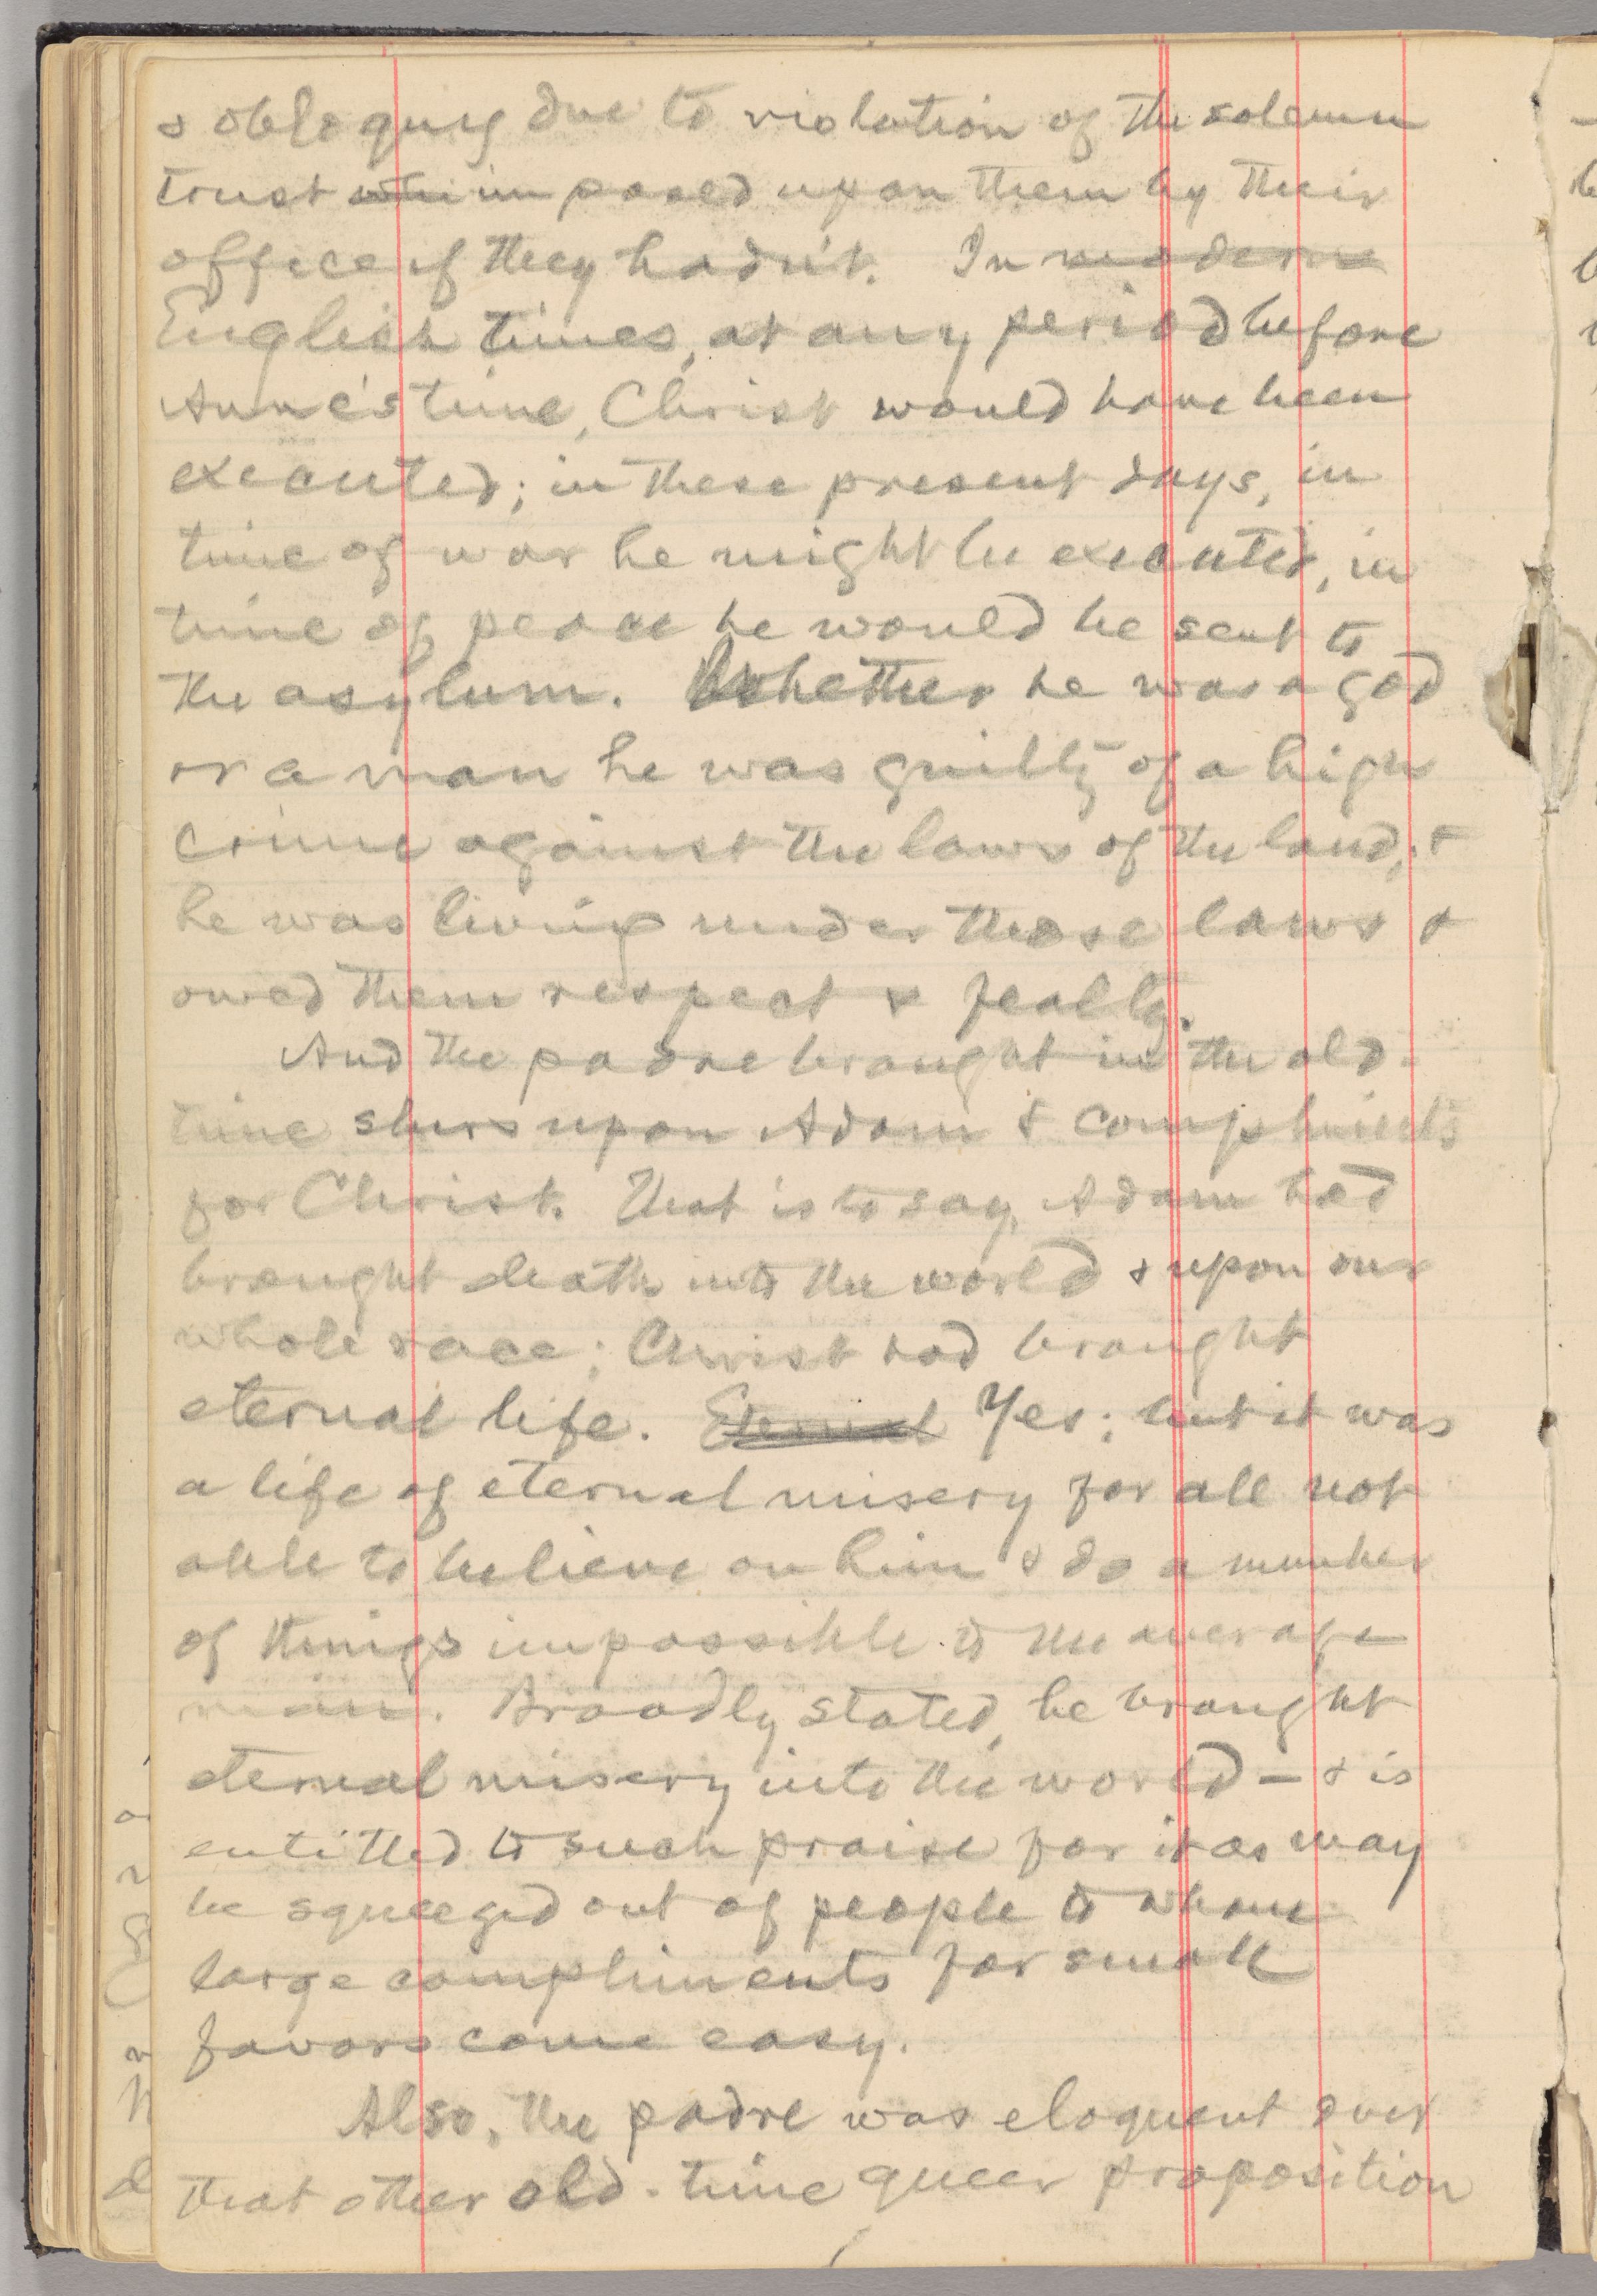 & obloquy due to violation of the solemn
trust whi imposed upon them by their
office if they hadn't. In modern
English times, at any period before
Anne's time, Christ would have been
executed; in these present days, in
time of war he might be executed, in
time of peace he would be sent to
the asylum. Whether he was a god
or a man he was guilty of a high
crime against the laws of the land, &
he was living under those laws &
owed them respect & fealty.
And the padre brought in the old-
time slurs upon Adam & compliments
for Christ. That is to say, Adam had
brought death into the world & upon our
whole race; Christ had brought
eternal life. Eternal Yes; but it was
a life of eternal misery for all not
able to believe on him & do a number
of things impossible to the average
man. Broadly stated, he brought
eternal misery into the world — & is
entitled to such praise for it as may
be squeezed out of people to whom
large compliments for small
favors come easy.
Also, the padre was eloquent over
that other old-time queer proposition